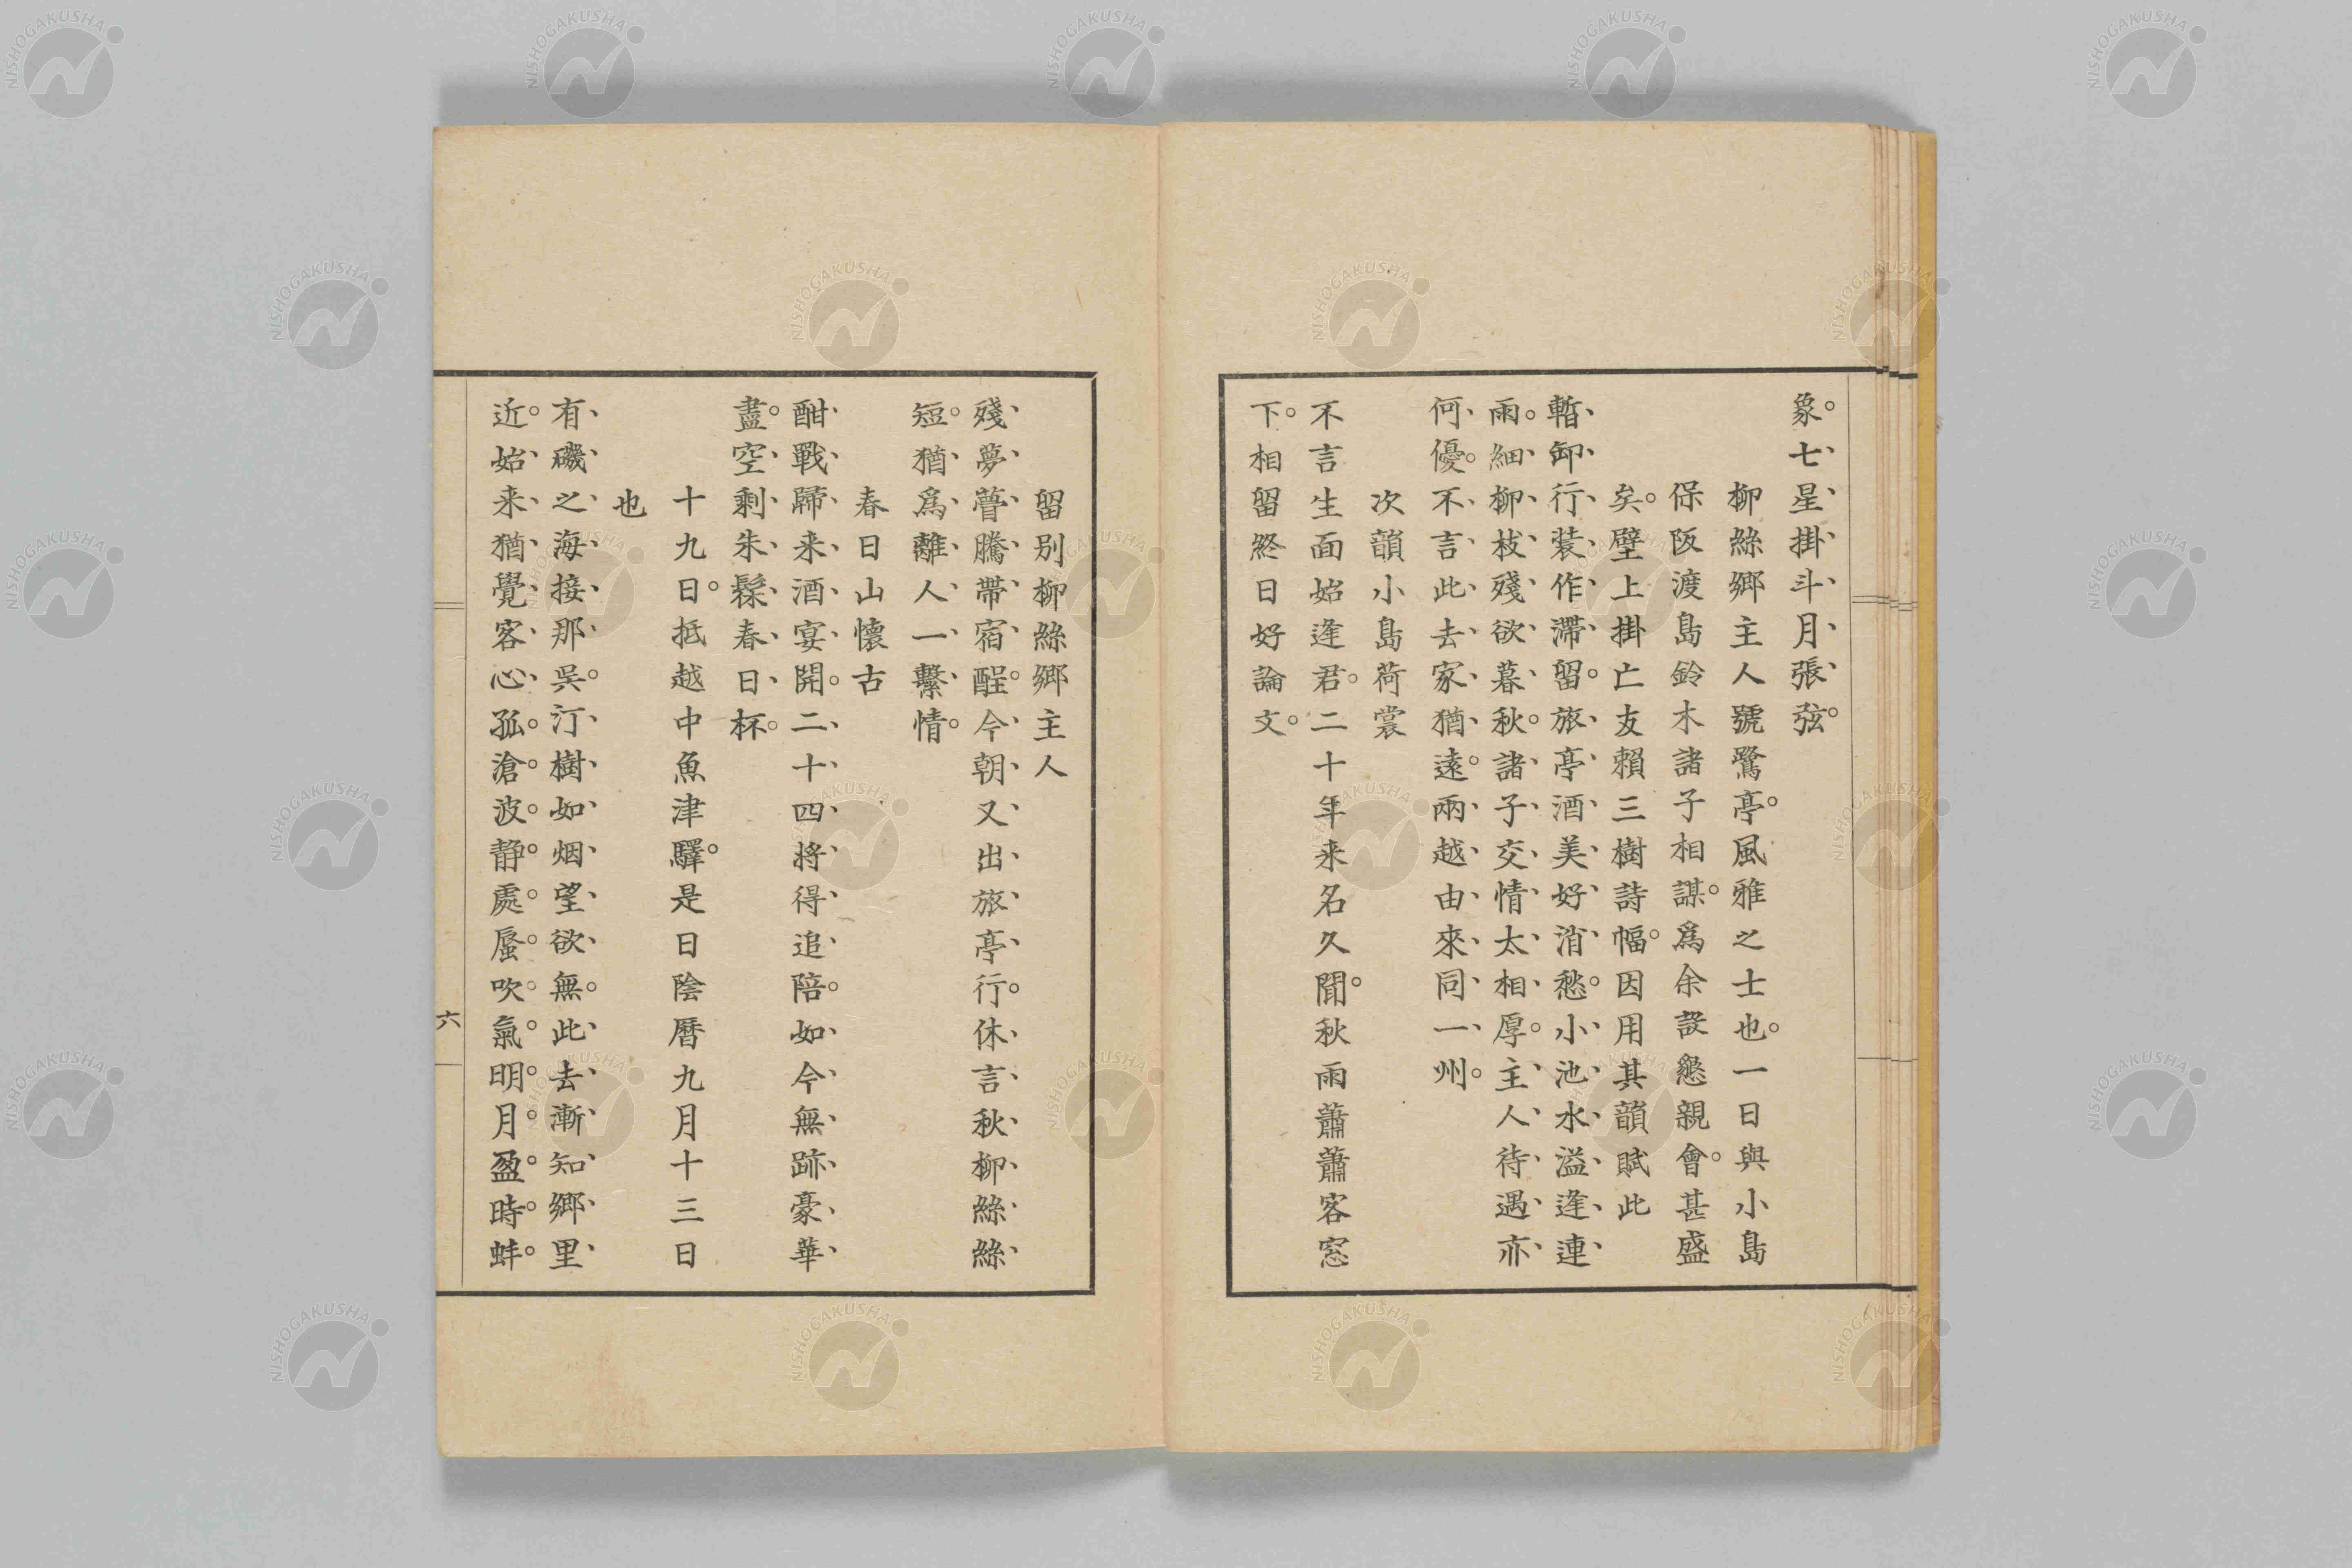 象。七星掛斗月張弦。
柳絲鄉主人號鷺亭。風雅之士也。一日與小島
保阪渡島鈴木諸子相謀。爲余設懇親會。甚盛
矣。壁上掛亡友賴三樹詩幅。因用其韻賦此
暫卸行装作滯留。旅亭酒美好消愁。小池水溢逢連
雨。細柳枝殘欲暮秋。諸子交情太相厚。主人待遇亦
何優。不言此去家猶遠。兩越由來同一州。
次韻小島荷裳
不言生面始逢君。二十年来名久聞。秋雨蕭蕭客窓
下。相留終日好論文。
留別柳絲鄉主人
殘夢瞢騰帶宿酲。今朝又出旅亭行。休言秋柳絲絲
短。猶爲離人一繫情。
春日山懷古
酣戰歸来酒宴開。二十四將得追陪。如今無跡豪華
盡。空剩朱髹春日杯。
十九日。抵越中魚津驛。是日陰曆九月十三日
也
有磯之海接那吳。汀樹如烟望欲無。此去漸知鄉里
近。始来猶覺客心孤。滄波靜處蜃吹氣。明月盈時蚌
六
NISHOGAKUSHA